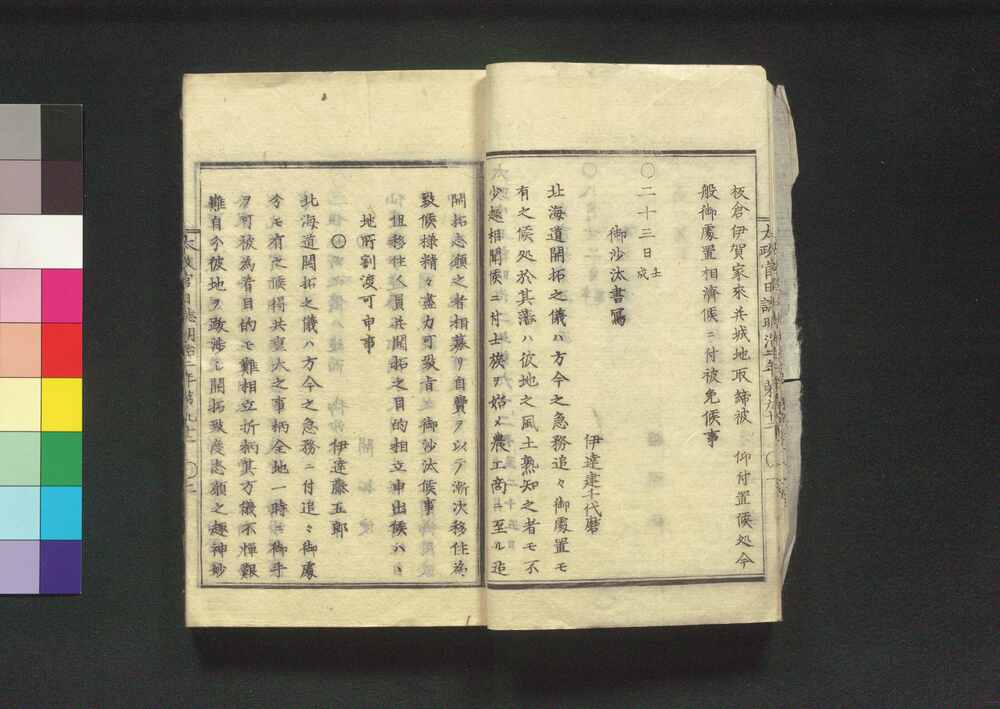 板倉伊賀家來共城地取締被　仰付置候処今
般御處置相濟候ニ付被免候事
〇二十三日壬戌
御沙汰書寫
伊達
北海道開拓之儀ハ方今之急務追々御處置モ
有之候処於其藩ハ彼地之風土熟知之者モ不
少趣相聞候ニ付士族ヲ始メ農工商ニ至ル迄
開拓志願之者相募リ自費ヲ以テ漸次移住為
致候樣精々盡力可致旨　御沙汰候事
但移住人員并開拓之目的相立申出候ハヽ
地所割渡可申事
〇　伊達藤五郎
北海道開拓之儀ハ方今之急務ニ付追々御處
分モ有之候得共廣大之事柄全地一時ニ御手
ヲ可被為着目的モ難相立折柄其方儀不憚艱
難自今彼地ヲ政治シ開拓致度志願之趣神妙
太政官日誌明治二年第九十二　〇二